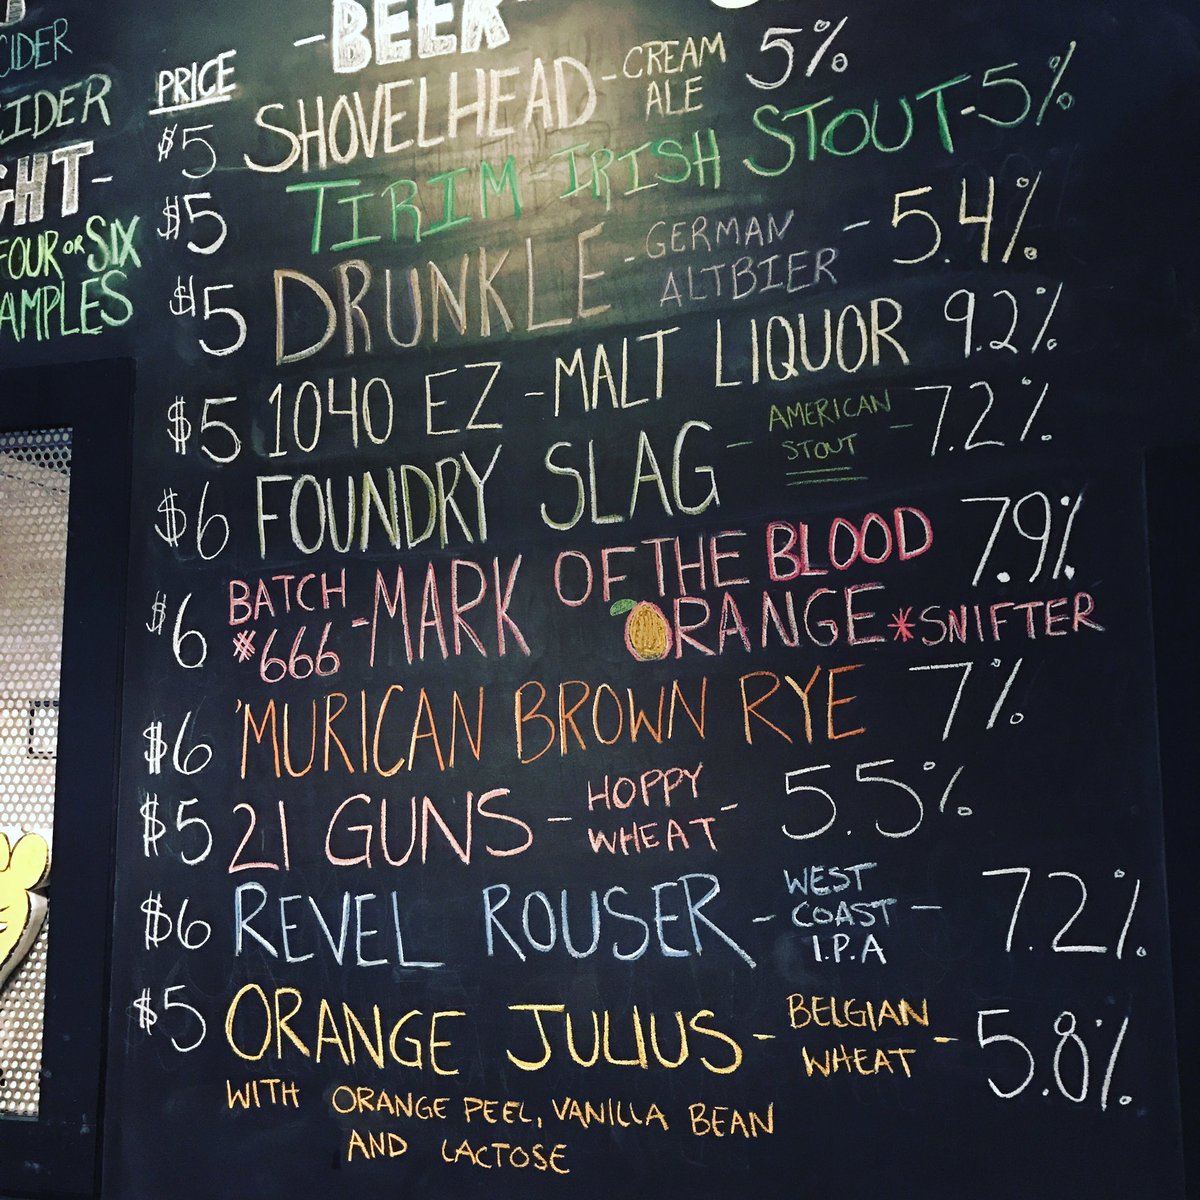 CIDER
CIDER
GHT-
FOUR OR SIX
AMPLES
-BEER-
PRICE
$5 SHOVELHEAD - CREAM ALE 5%
$5 TIRIM IRISH STOUT - 5%
$5 DRUNKLE - GERMAN ALTBIER - 5.4%
$5 1040 EZ - MALT LIQUOR 9.2%
$6 FOUNDRY SLAG - AMERICAN STOUT - 7.2%
$6 BATCH #666 - MARK OF THE BLOOD ORANGE *SNIFTER 7.9%
$6 'MURICAN BROWN RYE 7%
$5 21 GUNS - HOPPY WHEAT - 5.5%
$6 REVEL ROUSER - WEST COAST I.P.A - 7.2%
$5 ORANGE JULIUS - BELGIAN WHEAT - 5.8%
WITH ORANGE PEEL, VANILLA BEAN
AND LACTOSE